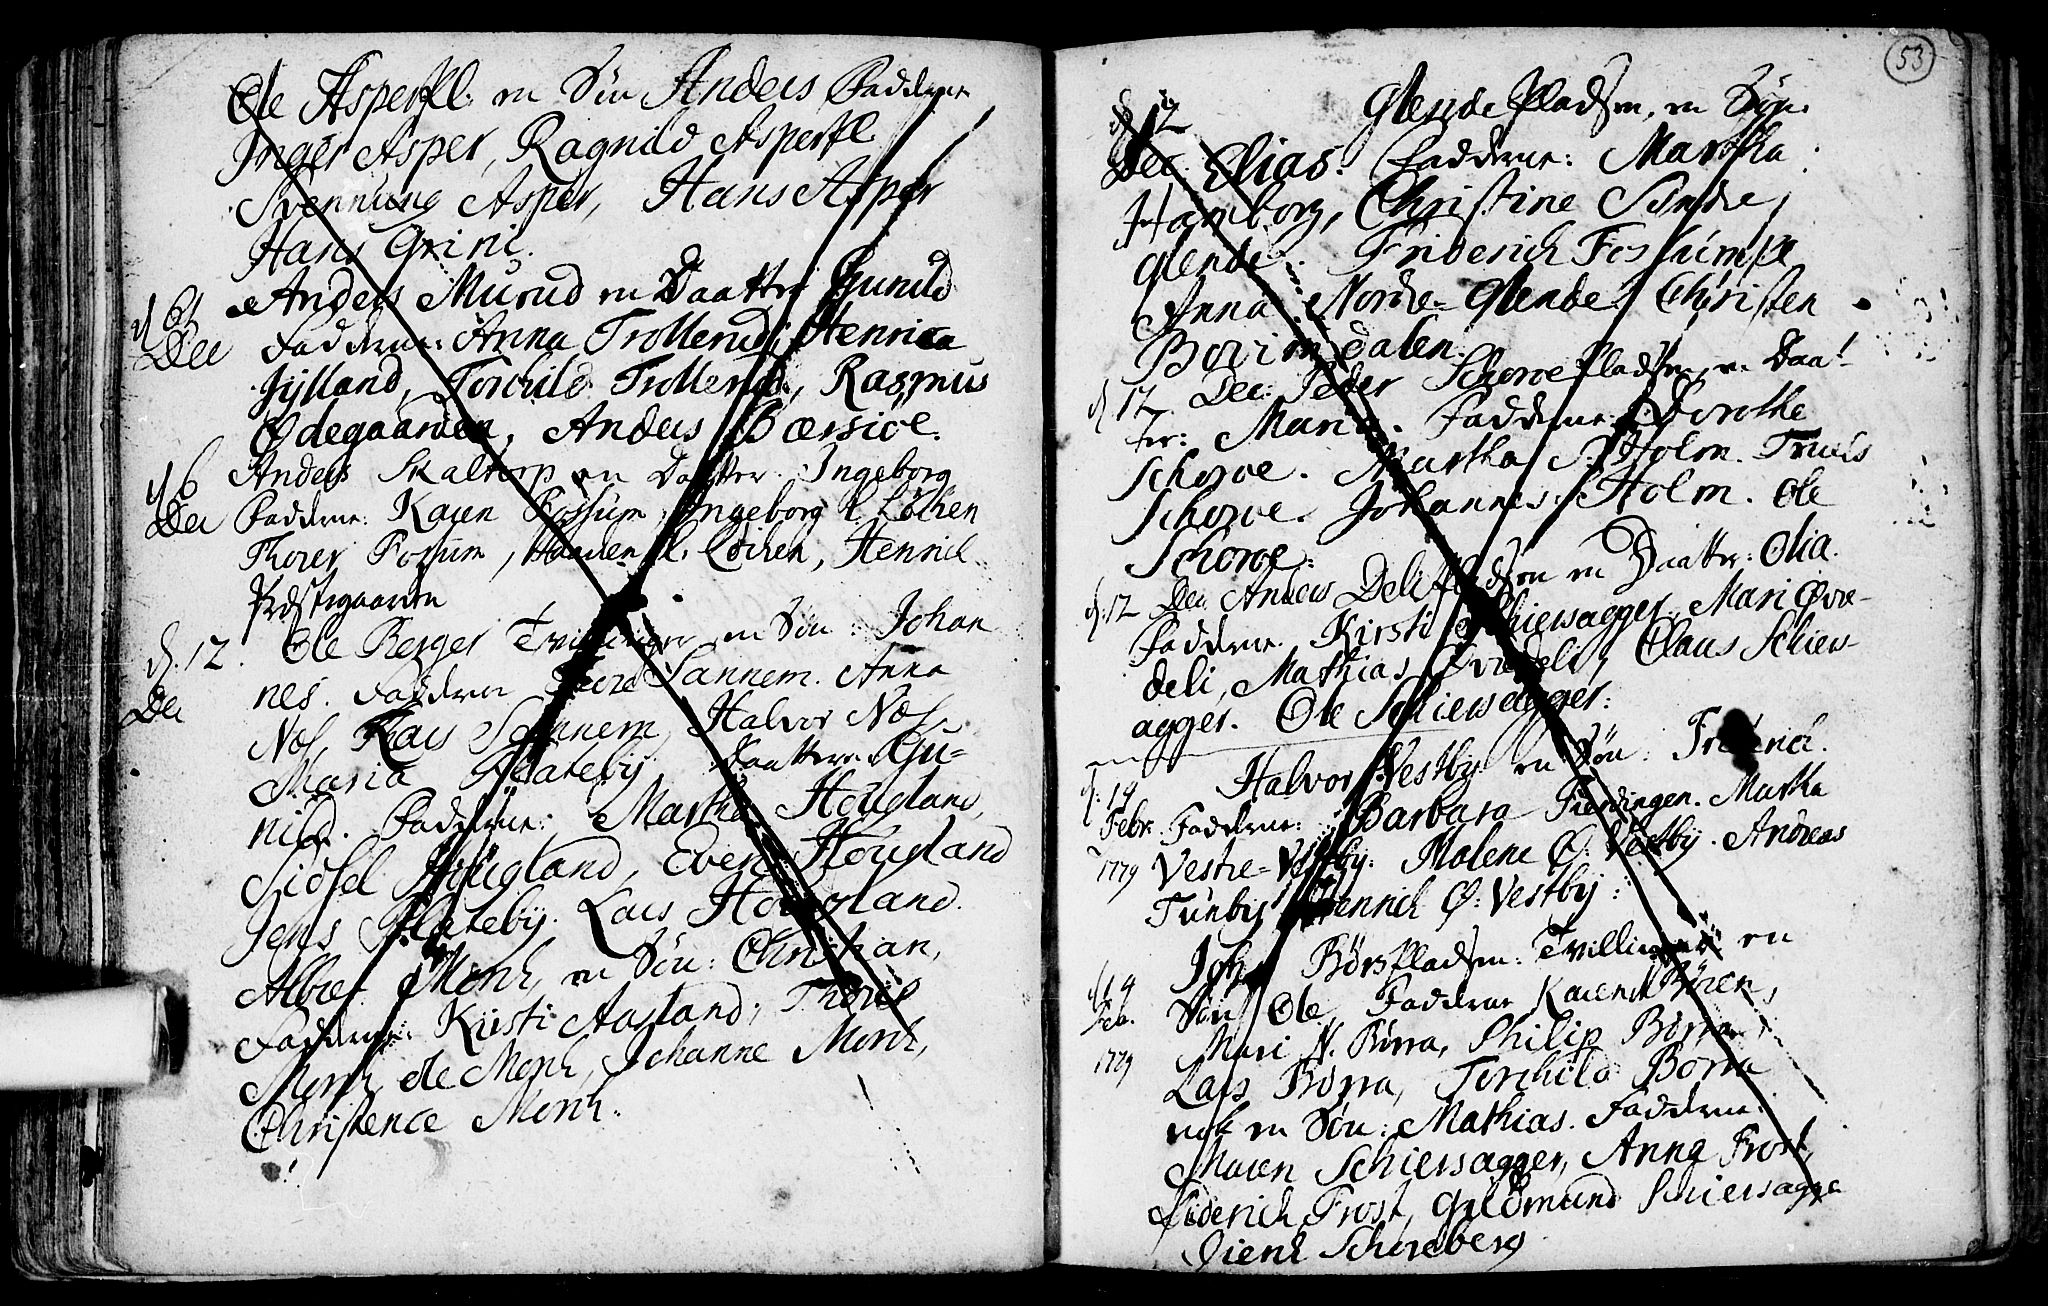 Ole Asperfl. en Søn Anders Fadderne
Inger Asper, Ragnild Asperfl.
Svennung Asper, Hans Asper
Hans Grini.
d 6
Dec Anders Murud en Daatter Gunild
Fadderne: Anna Trollerud, Henrica
Jylland, Torchild Trollerud, Rasmus
Ødegaarden, Anders Bærsiøe.
d 6 Anders Skaltorp en Daatter Ingeborg
Dec Fadderne: Karen Fossum, Ingeborg L. Løchen
Thorer Fossum, L. Løchen, Henrich
Præstegaarden
d. 12. Ole Berger Tvillinger en Søn: Johan
Dec nes. Fadderne Sannem. Anna
Næs, Lars Sannem, Halvor Næs,
Maria Flateby. Daatteren Gu-
nild. Fadderne: Martha Hougland,
Sidsel Hougland, Even Hougland
Jens Flateby. Lars Hougland.
Mønch, en Søn: Christian,
Fadderne: Kirsti Aasland,
Mønch, Ole Mønch, Johanne Mønch,
Christence Mønch.
53
d. 12 Glende Pladsen, en Søn.
Dec. Elias. Fadderne: Martha
Hamborg, Christine Søndre
Glende. Friderich
Anna Nordre-Glende. Christen
dalen.
d. 12. Dec: Peder Schoroe Pladsen, en Daat
ter: Maria. Fadderne: Dorothe
Schoroe. Martha S. Holm. Truels
Schoroe. Johannes S. Holm. Ole
Schoroe.
d. 12 Dec. Anders Deli Pladsen en Daatter: Olia.
Fadderne. Kirsti Schiersagger. Mari Øvre-
deli, Mathias Øvredeli, Claus Schiers-
agger. Ole Schiersagger.
d. 14 Halvor Vestby en Søn: Friderich.
Febr. Fadderne: Barbara Fierdingen. Martha
1779 Vestre-Vestby. Malene Ø. Vestby. Andreas
Tunby Henrich Ø. Vestby:
d 14 Joh. Børs Pladsen: Tvillinger en
Feb. Søn Ole, Fadderne Karen Børen,
1779 Mari N. Børra, Philip Børra,
Lars Børra, Torchild Børra
nok en Søn: Mathias. Fadderne:
Maren Schiersagger, Anna Frost,
Friderich Frost, Guldmund Schiersagge
Schoreberg